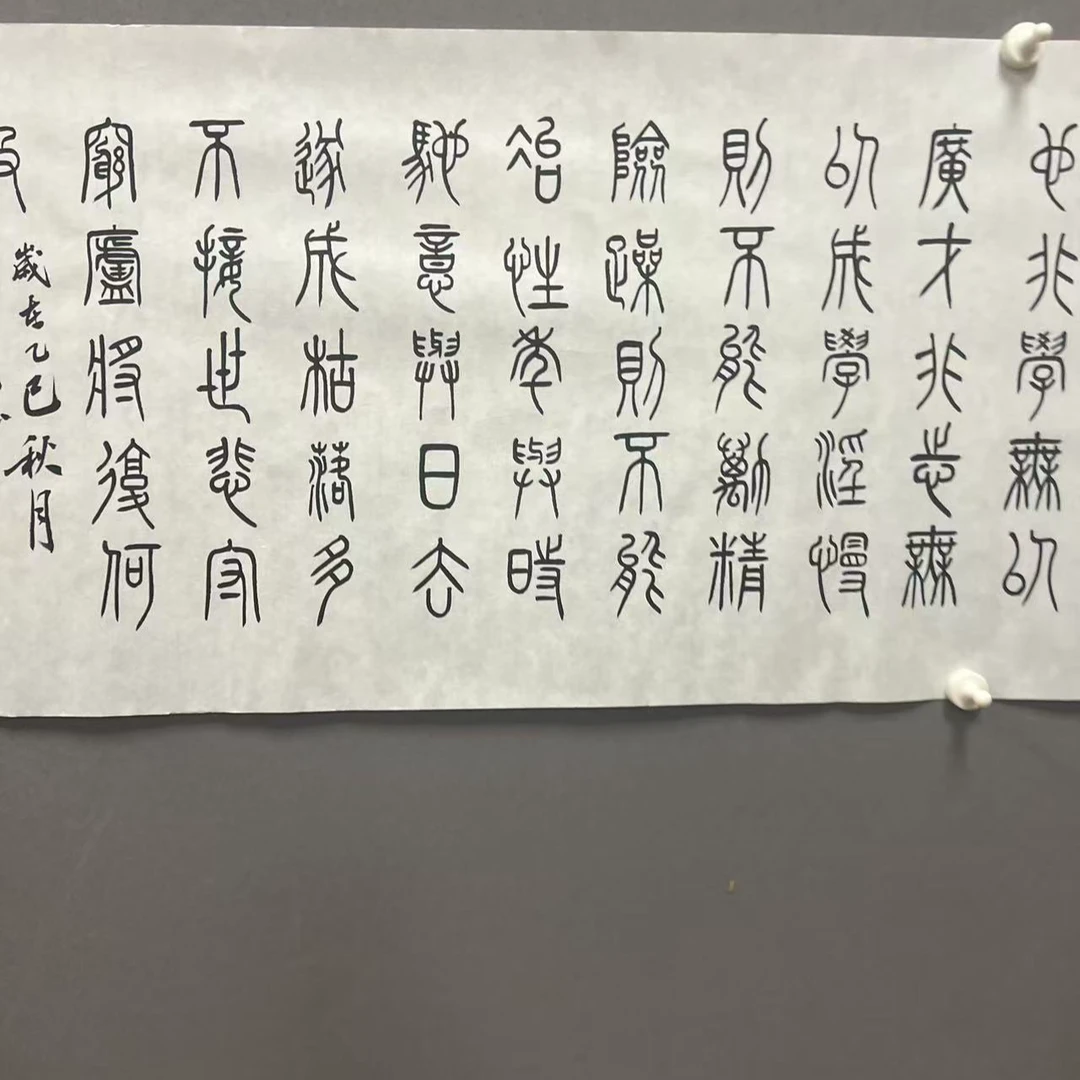 也非學無以
廣才非志無
以成學淫慢
則不能勵精
險躁則不能
冶性年與時
馳意與日去
遂成枯落多
不接世悲守
窮廬將復何
及
歲在乙巳秋月